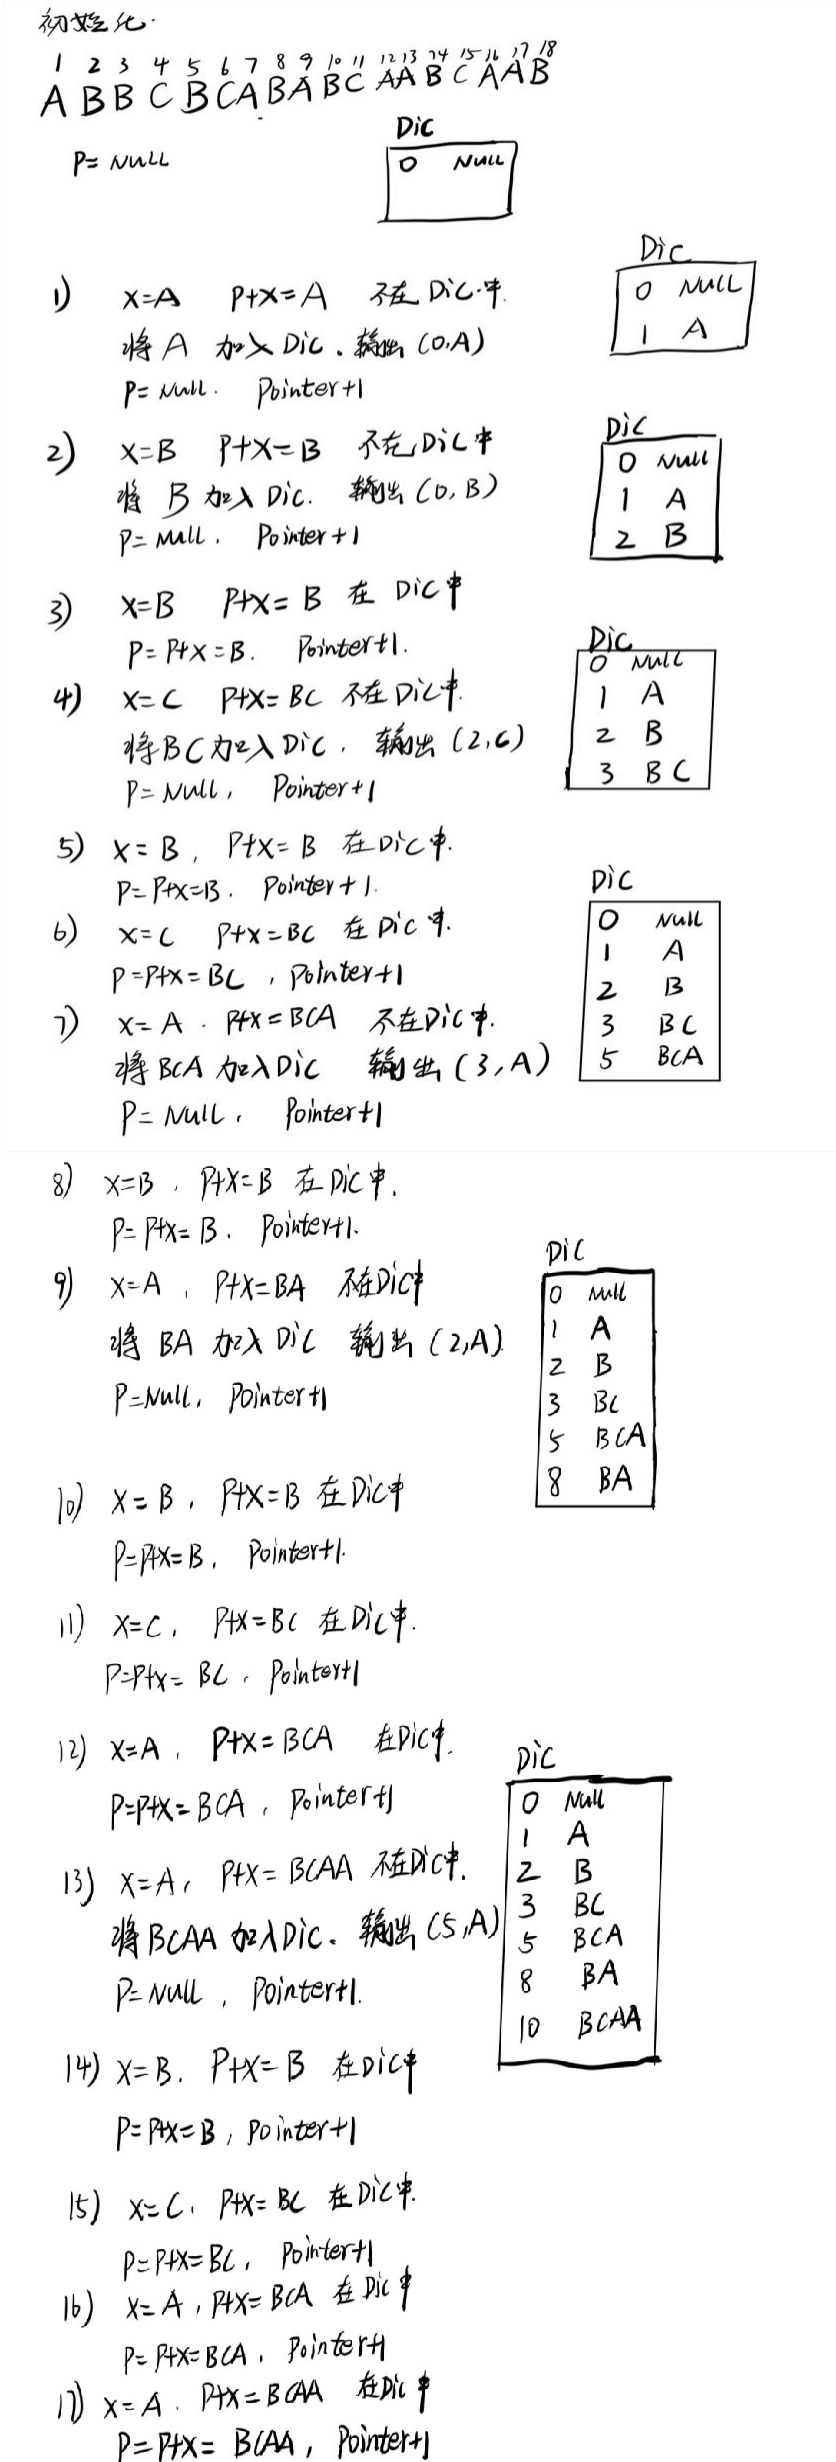 初始化.
1 2 3 4 5 6 7 8 9 10 11 12 13 14 15 16 17 18
A B B C B C A B A B C A A B C A A B
P= NULL
Dic
0 NULL
1) X=A P+X=A 不在 Dic 中.
将 A 加入 Dic. 输出 (0,A)
P= NULL. Pointer+1
Dic
0 NULL
1 A
2) X=B P+X=B 不在 Dic 中
将 B 加入 Dic. 输出 (0,B)
P= NULL. Pointer+1
Dic
0 NULL
1 A
2 B
3) X=B P+X= B 在 Dic 中
P= P+X =B. Pointer+1.
4) X=C P+X= BC 不在 Dic 中.
将 BC 加入 Dic, 输出 (2,C)
P= NULL, Pointer+1
Dic
0 NULL
1 A
2 B
3 BC
5) X= B, P+X= B 在 Dic 中.
P= P+X=B. Pointer+1.
6) X=C P+X=BC 在 Dic 中.
P=P+X= BC, Pointer+1
7) X= A. P+X= BCA 不在 Dic 中.
将 BCA 加入 Dic 输出 (3,A)
P= NULL, Pointer+1
Dic
0 NULL
1 A
2 B
3 BC
5 BCA
8) X=B, P+X=B 在 Dic 中.
P= P+X= B. Pointer+1.
9) X=A, P+X=BA 不在 Dic 中
将 BA 加入 Dic 输出 (2,A)
P=NULL, Pointer+1
Dic
0 NULL
1 A
2 B
3 BC
5 BCA
8 BA
10) X= B, P+X=B 在 Dic 中
P=P+X=B, Pointer+1.
11) X=C, P+X=BC 在 Dic 中.
P=P+X= BC, Pointer+1
12) X=A, P+X= BCA 在 Dic 中.
P=P+X= BCA, Pointer+1
13) X=A, P+X= BCAA 不在 Dic 中.
将 BCAA 加入 Dic. 输出 (5,A)
P= NULL, Pointer+1.
Dic
0 NULL
1 A
2 B
3 BC
5 BCA
8 BA
10 BCAA
14) X=B. P+X= B 在 Dic 中
P= P+X=B, Pointer+1
15) X=C, P+X= BC 在 Dic 中.
P=P+X=BC, Pointer+1
16) X=A, P+X= BCA 在 Dic 中
P= P+X=BCA, Pointer+1
17) X=A. P+X=BCAA 在 Dic 中
P=P+X= BCAA, Pointer+1